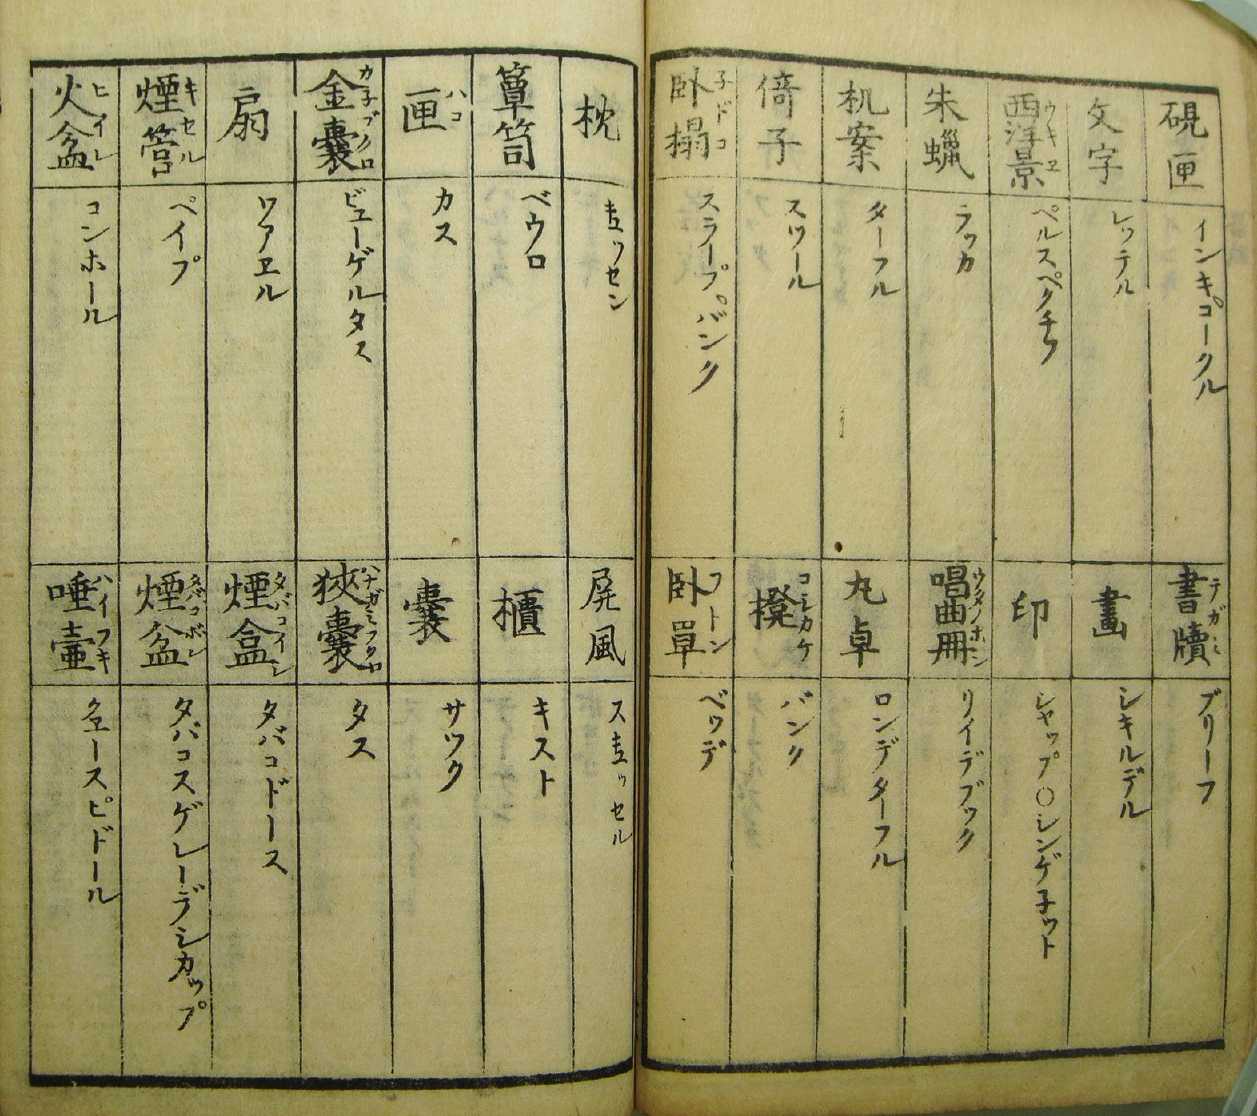 硯匣
インキコークル
文字
レッテル
西洋景 ウキヱ
ペルスペクチフ
朱蠟
ラッカ
机案
ターフル
倚子
スツール
臥榻 子ドコ
スラープバンク
書牘 テガミ
ブリーフ
畫
シキルデル
印
シャップ○シンゲ子ット
唱曲冊 ウタノホン
リイデブック
丸卓
ロンデターフル
櫈 コシカケ
バンク
臥單 フトン
ベッデ
枕
キュッセン
簞笥
ベウロ
匣 ハコ
カス
金嚢 カ子ブクロ
ビューゲルタス
扇
ワアヱル
煙筩 キセル
ペイプ
火盆 ヒイレ
コンホール
屏風
スキュッセル
櫃
キスト
嚢
サツク
狹嚢 ハナガミブクロ
タス
煙盒 タバコイレ
タバコドース
煙盆 タバコボン
タバコスゲレーデシカップ
唾壷 ハイフキ
クェースピドール